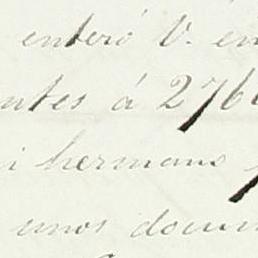 enteró V. en
ntes á 276
i hermano
unos docum